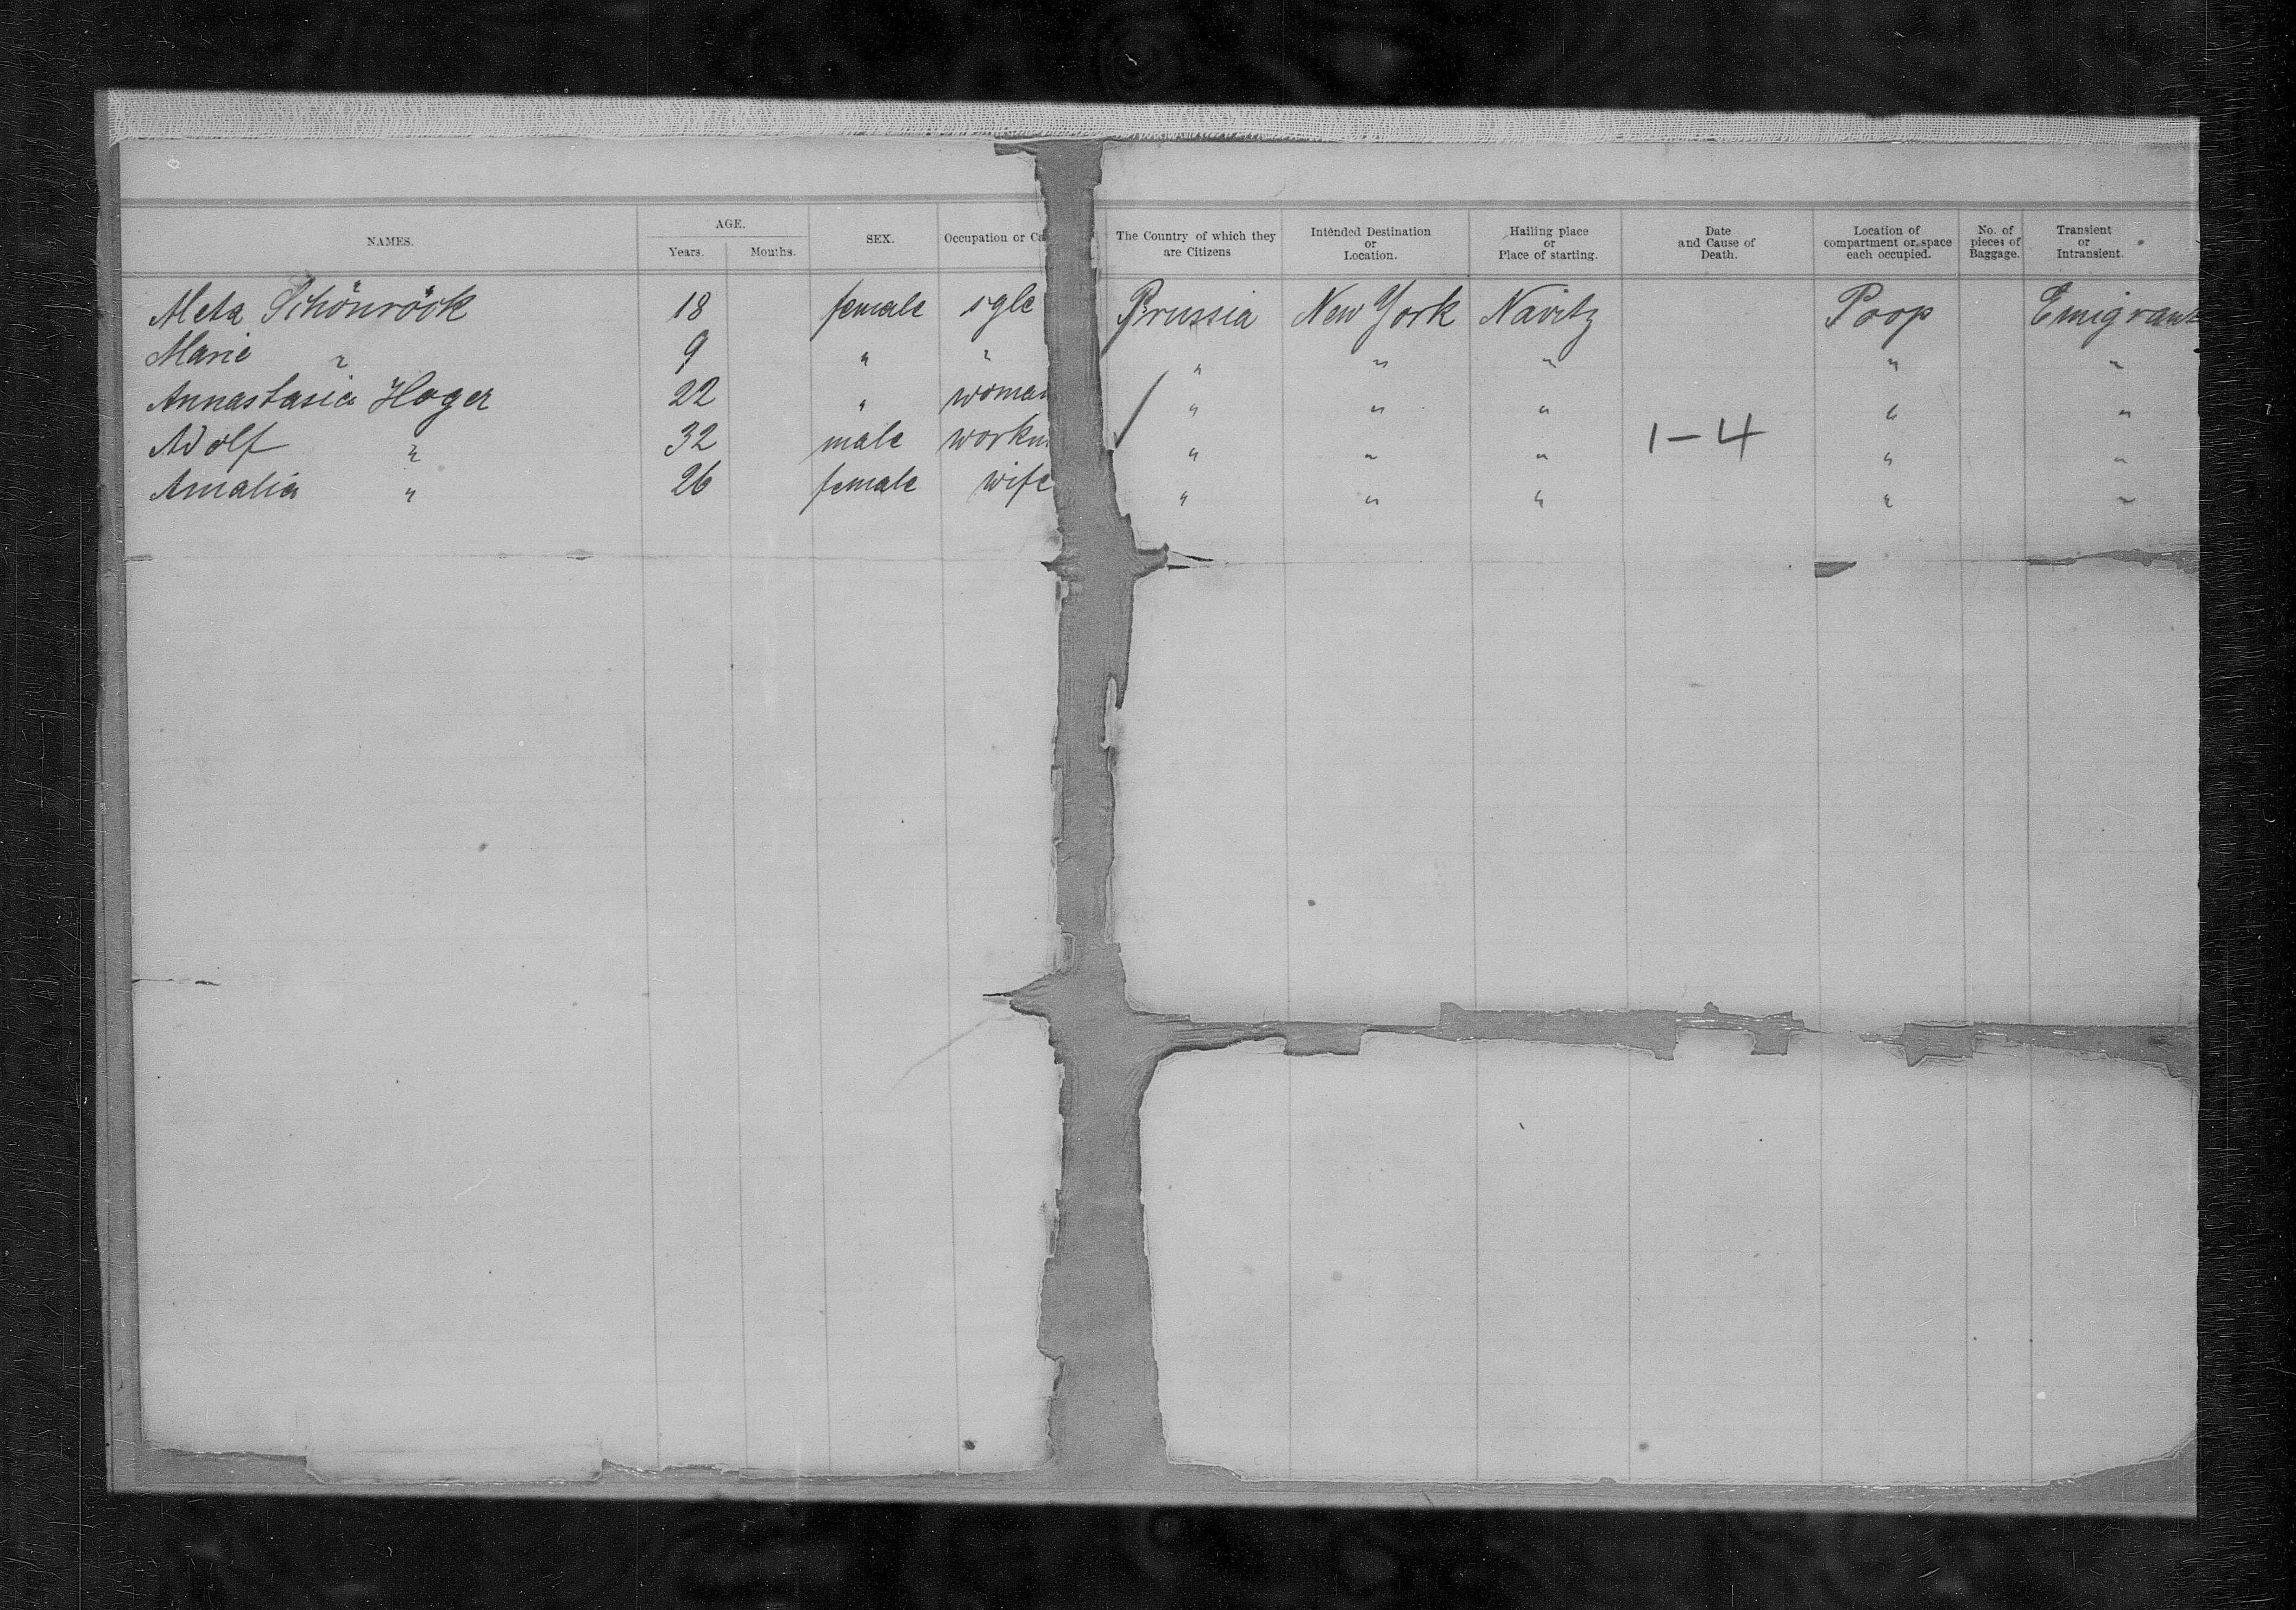 NAMES. AGE. Years. Months. SEX. Occupation or Ca The Country of which they are Citizens Intended Destination or Location. Hailing place or Place of starting. Date and Cause of Death. Location of compartment or space each occupied. No. of pieces of Baggage. Transient or Intransient.
Meta Schönröck 18 female sgle Prussia New York Navitz Poop Emigrant
Marie " 9 " " " " " " "
Annastasia Hoger 22 " woman " " " " "
Adolf " 32 male workm " " " 1-4 " "
Amalia " 26 female wife " " " " "